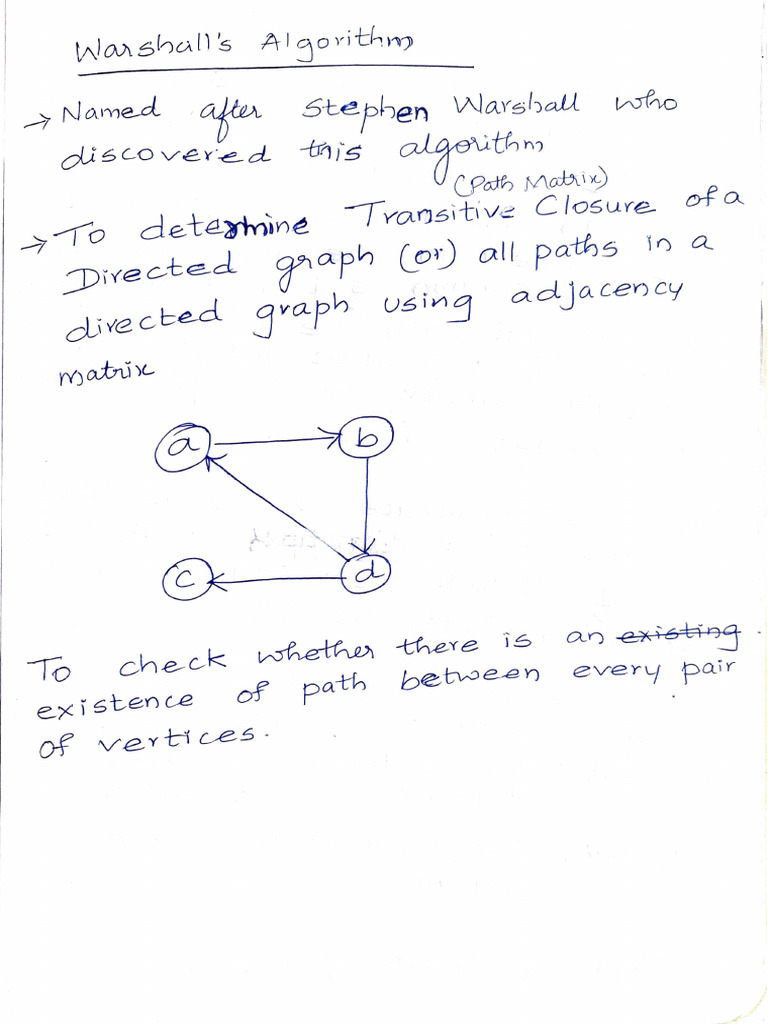 Warshall's Algorithm
→ Named after Stephen Warshall who
discovered this algorithm
(Path Matrix)
→ To determine Transitive Closure of a
Directed graph (or) all paths in a
directed graph using adjacency
matrix
a b
c d
To check whether there is an existing
existence of path between every pair
of vertices.